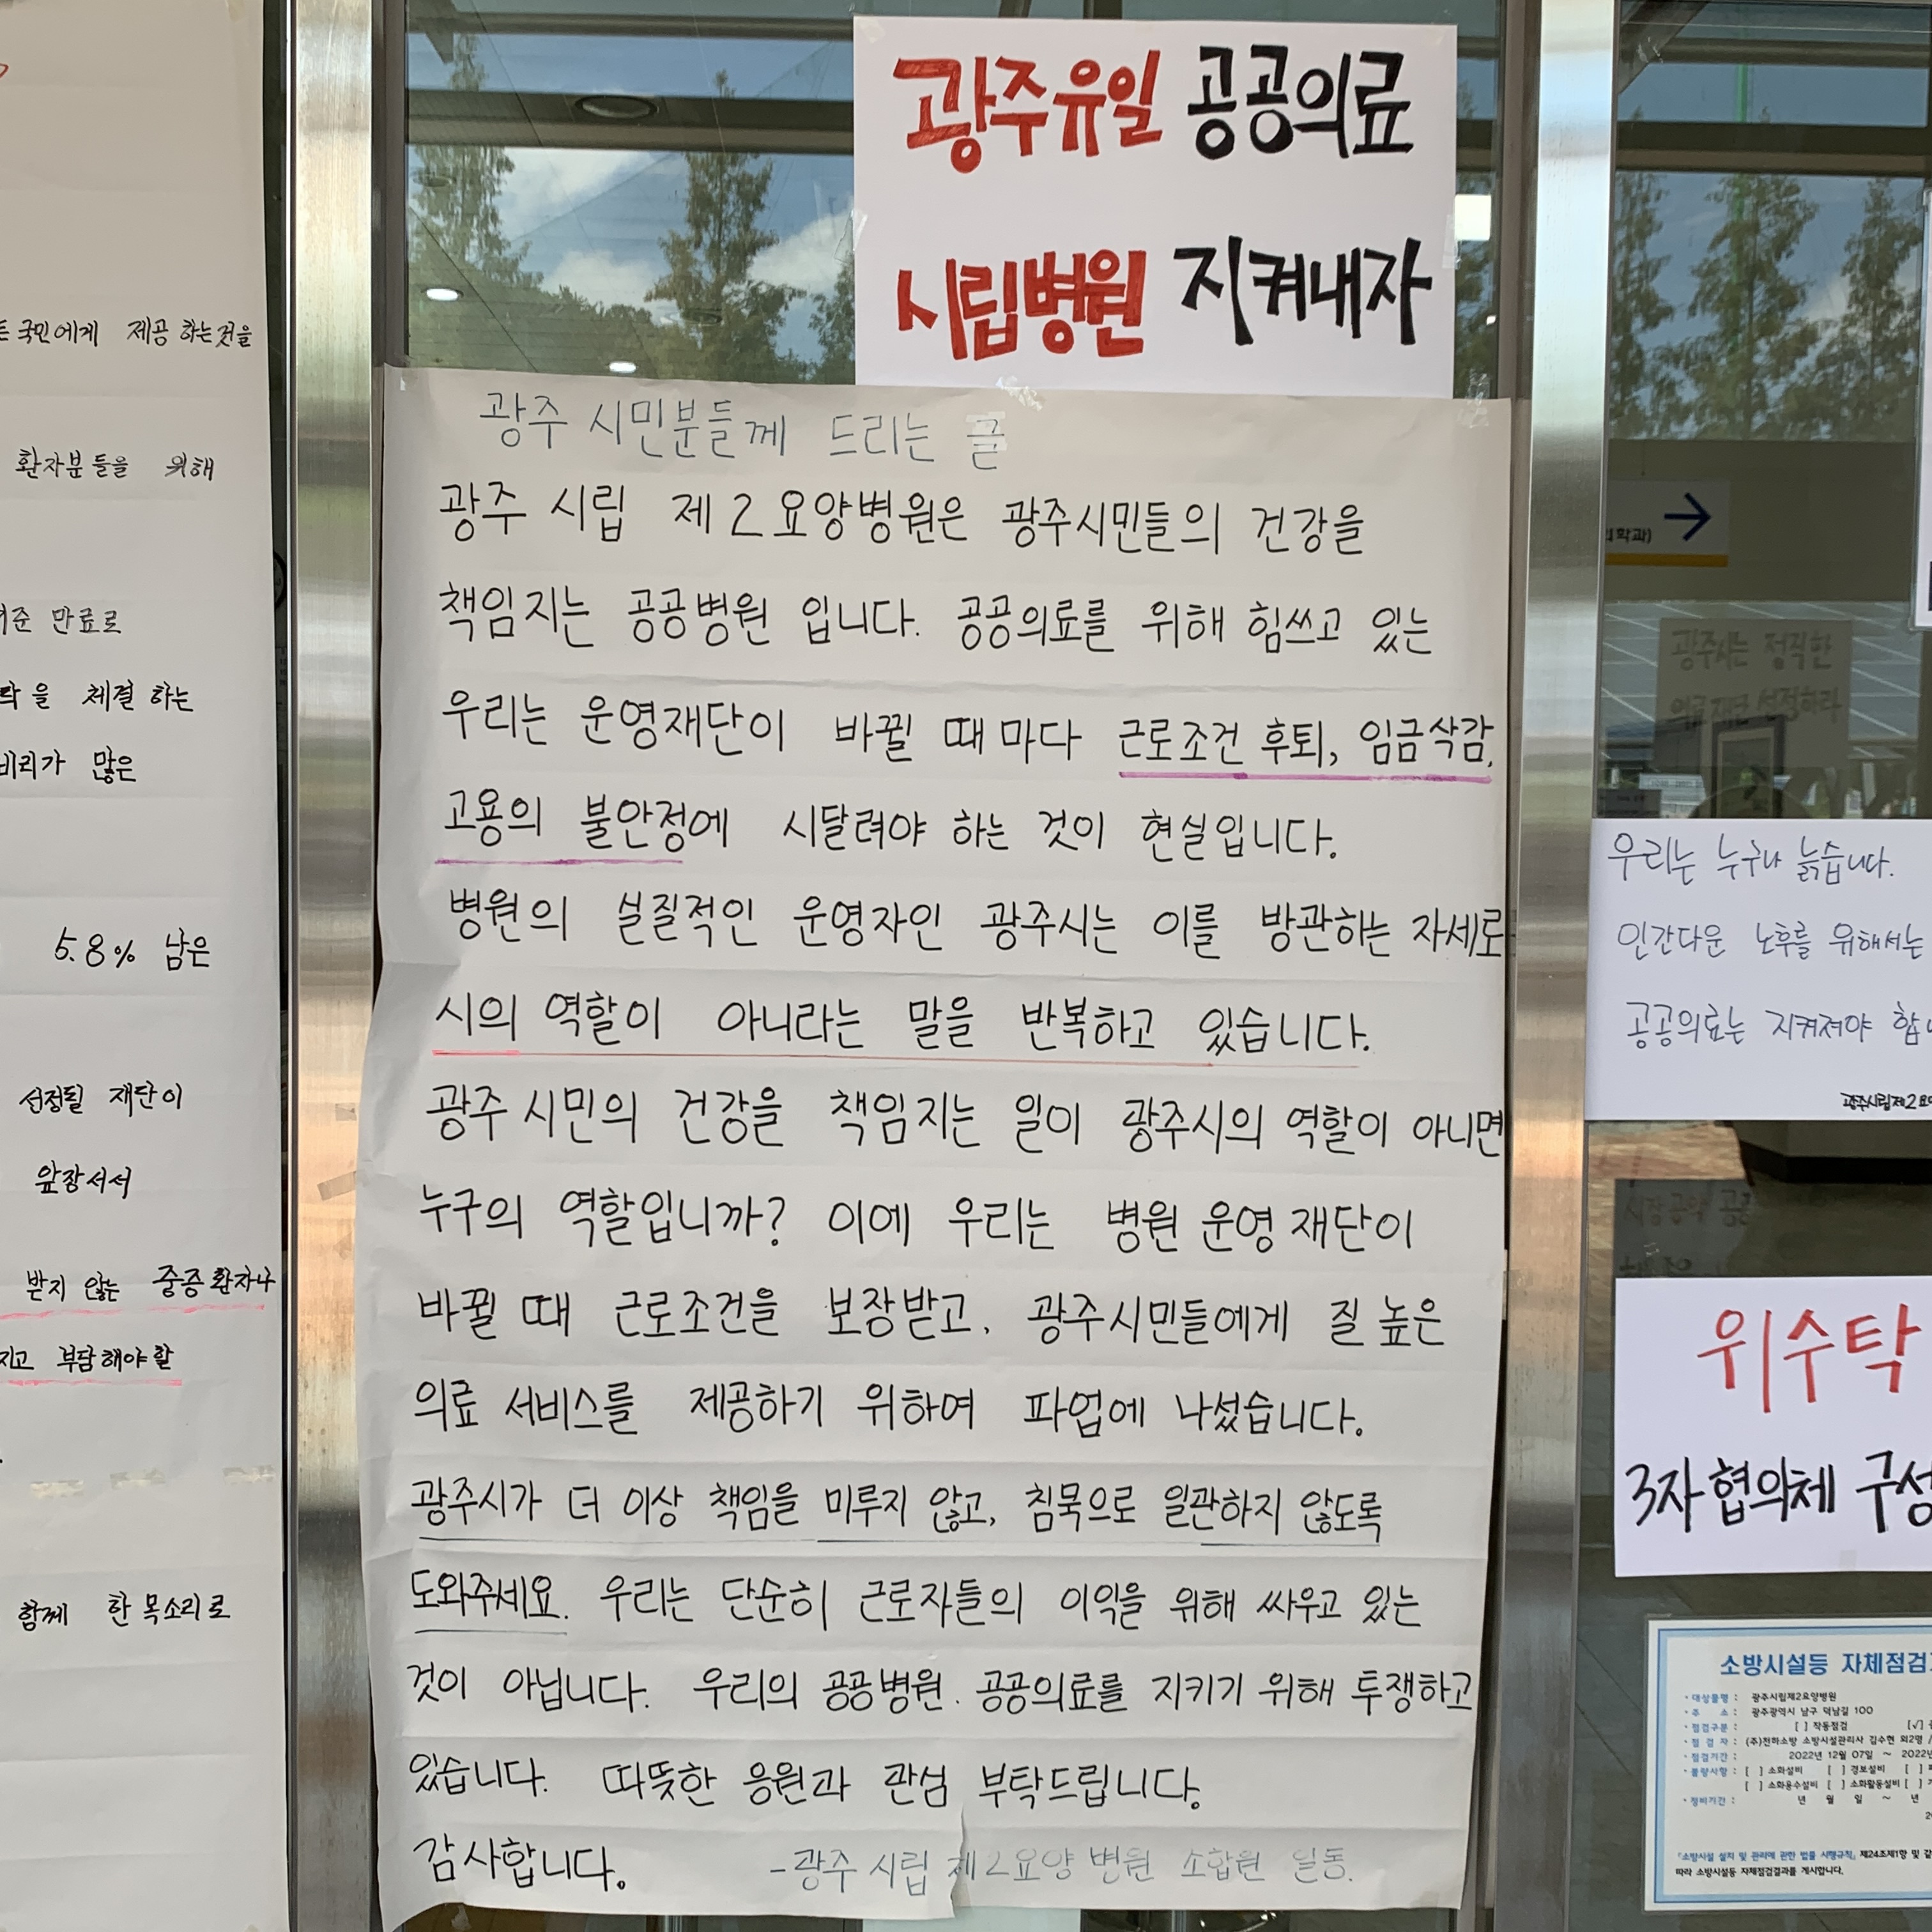 광주유일 공공의료
시립병원 지켜내자
광주 시민분들께 드리는 글
광주 시립 제2요양병원은 광주시민들의 건강을
책임지는 공공병원 입니다. 공공의료를 위해 힘쓰고 있는
우리는 운영재단이 바뀔 때마다 근로조건 후퇴, 임금삭감,
고용의 불안정에 시달려야 하는 것이 현실입니다.
병원의 실질적인 운영자인 광주시는 이를 방관하는 자세로
시의 역할이 아니라는 말을 반복하고 있습니다.
광주 시민의 건강을 책임지는 일이 광주시의 역할이 아니면
누구의 역할입니까? 이에 우리는 병원 운영 재단이
바뀔 때 근로조건을 보장받고, 광주시민들에게 질 높은
의료 서비스를 제공하기 위하여 파업에 나섰습니다.
광주시가 더 이상 책임을 미루지 않고, 침묵으로 일관하지 않도록
도와주세요. 우리는 단순히 근로자들의 이익을 위해 싸우고 있는
것이 아닙니다. 우리의 공공병원. 공공의료를 지키기 위해 투쟁하고
있습니다. 따뜻한 응원과 관심 부탁드립니다.
감사합니다. -광주 시립 제2요양 병원 조합원 일동.
국민에게 제공 하는것을
환자분들을 위해
만료로
을 체결 하는
비리가 많은
5.8% 남은
선정될 재단이
앞장서서
받지 않는 중증환자나
부담해야할
함께 한 목소리로
광주시는 정직한
의료재단 선정하라
우리는 누구나 늙습니다.
인간다운 노후를 위해서는
공공의료는 지켜져야
광주시립제2요양
위수탁
3자협의체 구성
소방시설등 자체점검
· 대상물명 : 광주시립제2요양병원
· 주 소 : 광주광역시 남구 덕남길 100
· 점검구분 : [ ] 작동점검 [√]
· 점 검 자 : (주)천하소방 소방시설관리사 김수현 외2명 /
· 점검기간 : 2022년 12월 07일 ~ 2022년
· 불량사항 : [ ] 소화설비 [ ] 경보설비 [ ]
[ ] 소화용수설비 [ ] 소화활동설비 [ ]
· 정비기간 : 년 월 일 ~ 년
「소방시설 설치 및 관리에 관한 법률 시행규칙」 제24조제1항 및
따라 소방시설등 자체점검결과를 게시합니다.